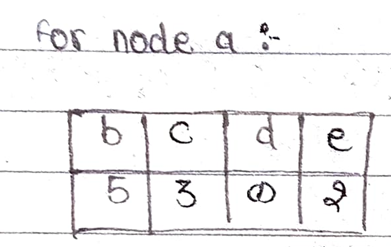 For node a :-
b c d e
5 3 1 2